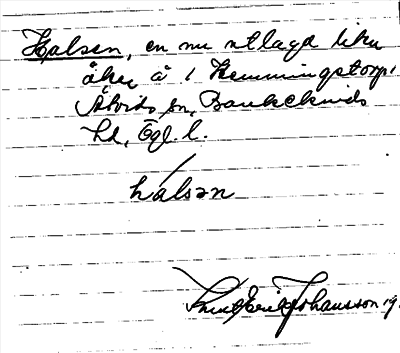 Halsen, en nu utlagd liten
åker å 1 Hemmingstorp,
Åtvids sn, Bankekinds
hd, Ögl. l.
halsən
Knut Erik Johansson 19